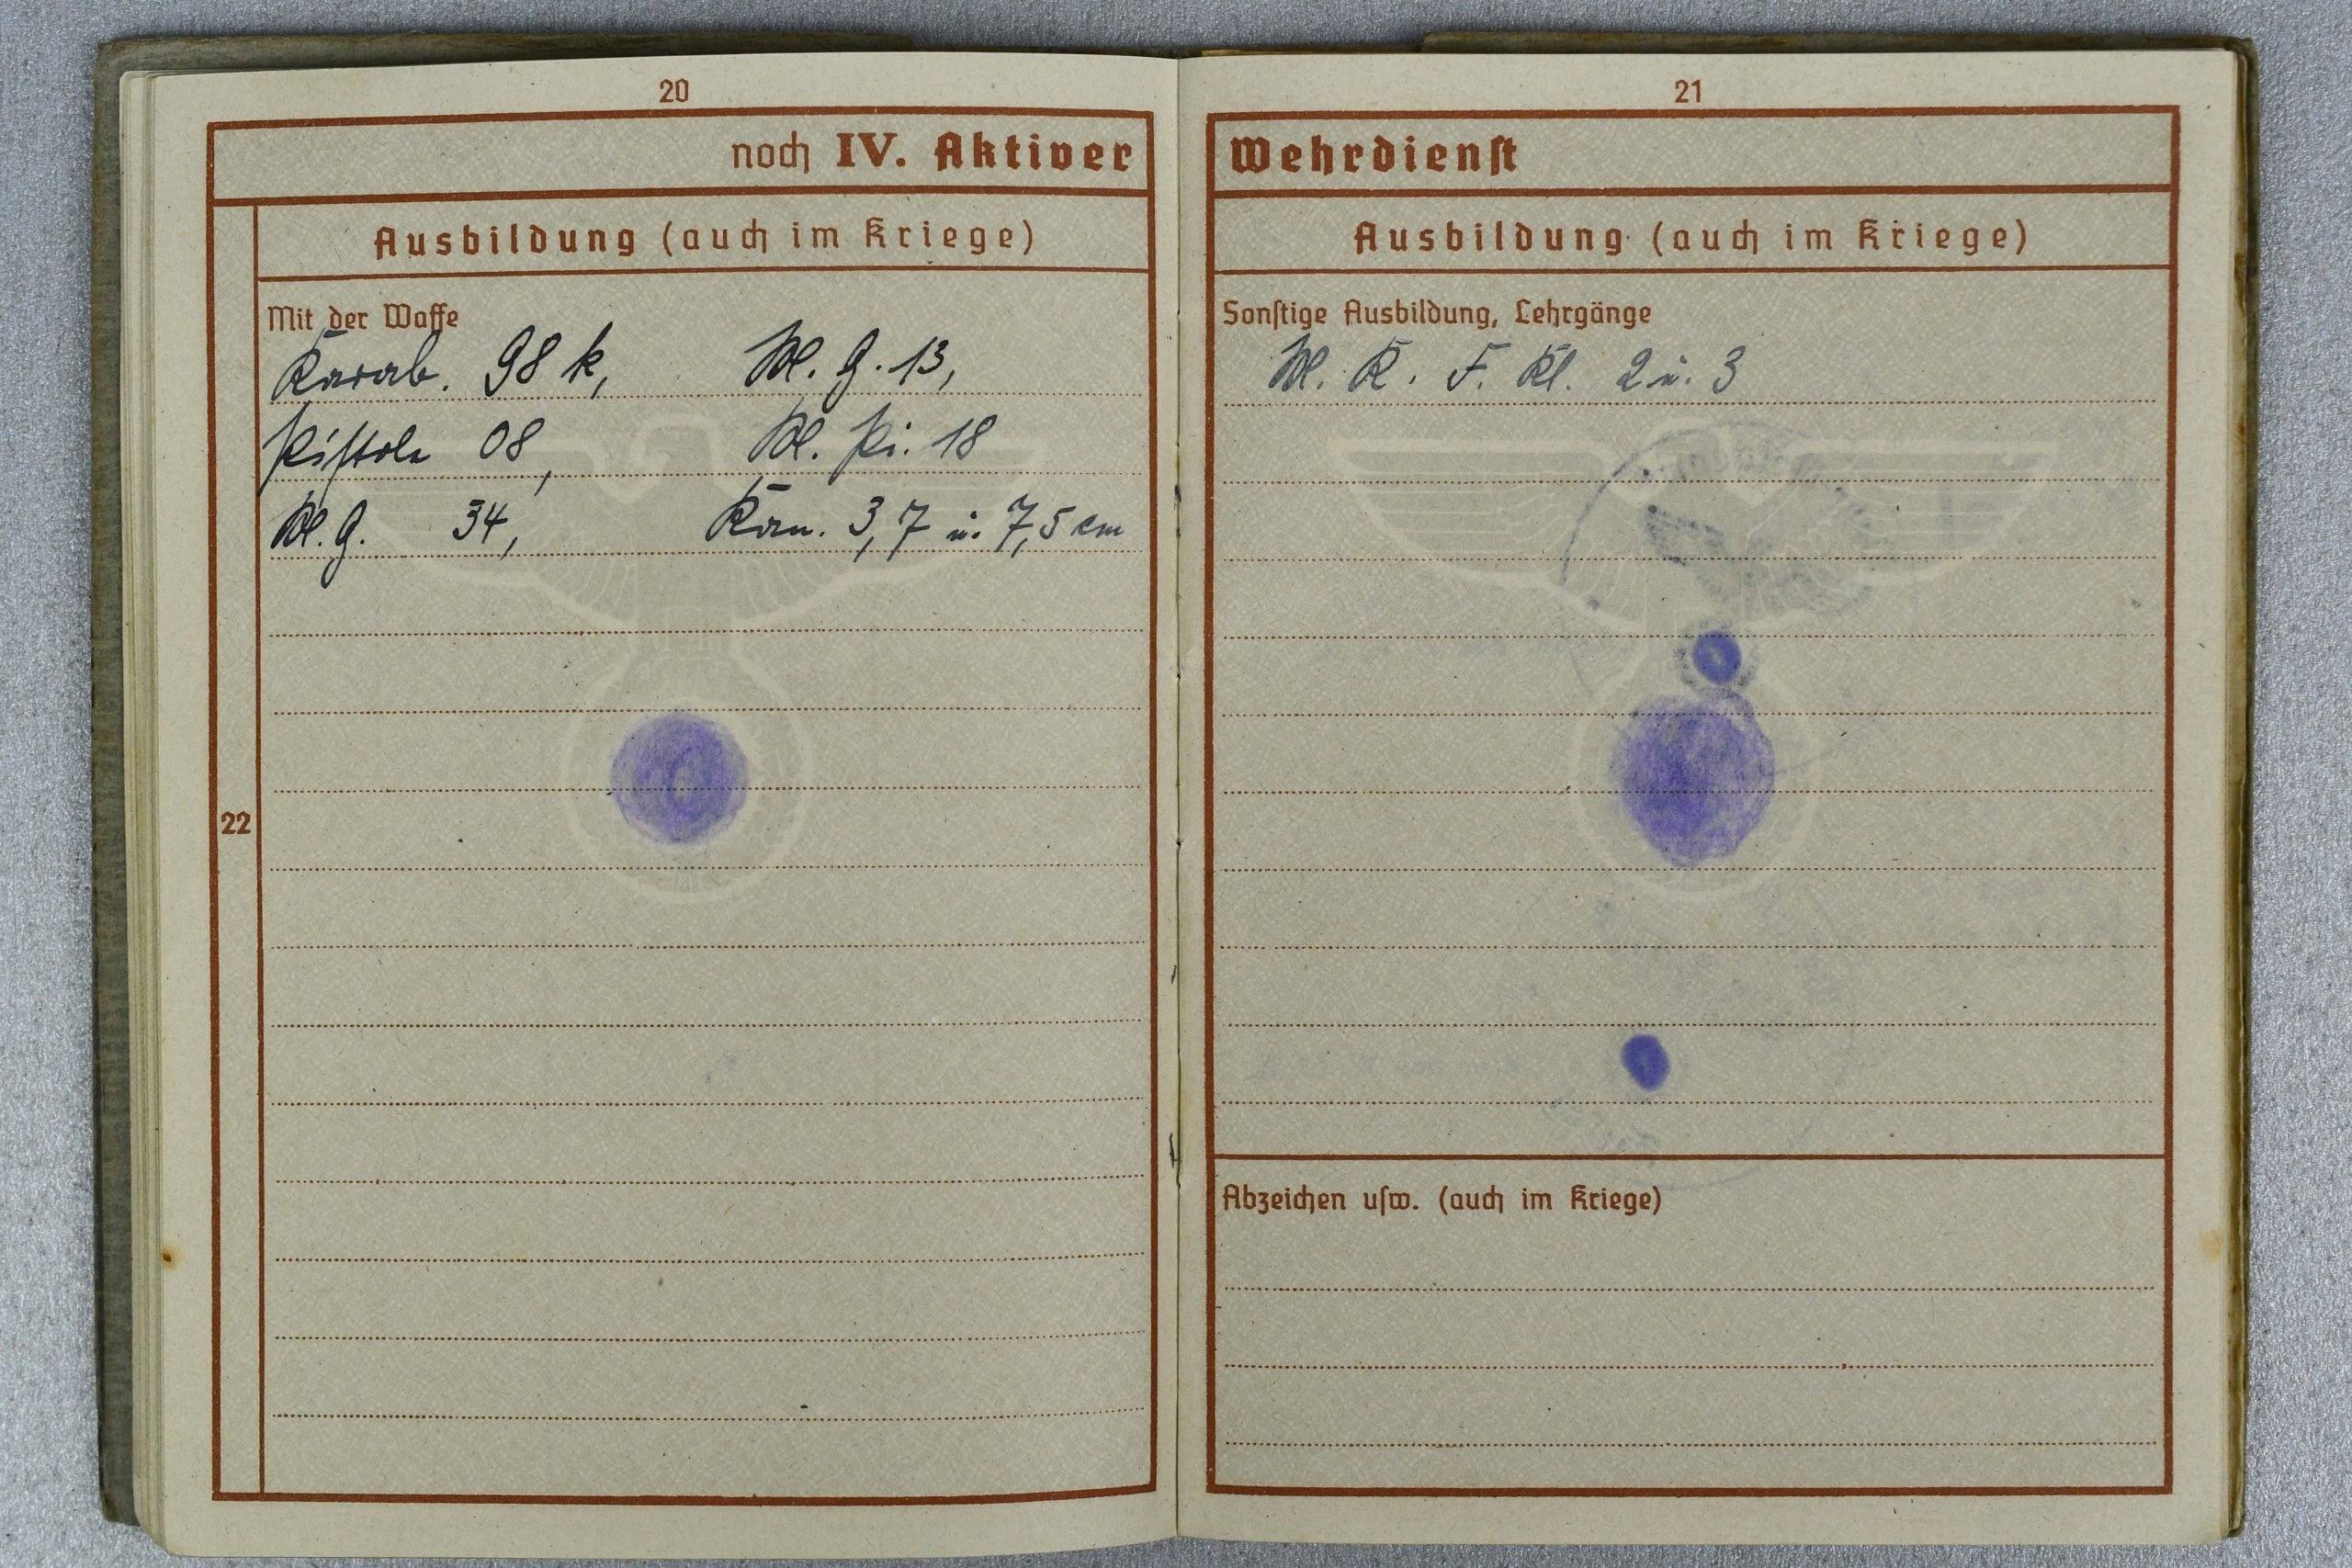 20
noch IV. Aktiver
Ausbildung (auch im Kriege)
22
Mit der Waffe
Karab. 98 k, M. G. 13,
Pistole 08, M. Pi. 18
M. G. 34, Kan. 3,7 u. 7,5 cm
21
Wehrdienst
Ausbildung (auch im Kriege)
Sonstige Ausbildung, Lehrgänge
M. K. F. Kl. 2 u. 3
Abzeichen usw. (auch im Kriege)